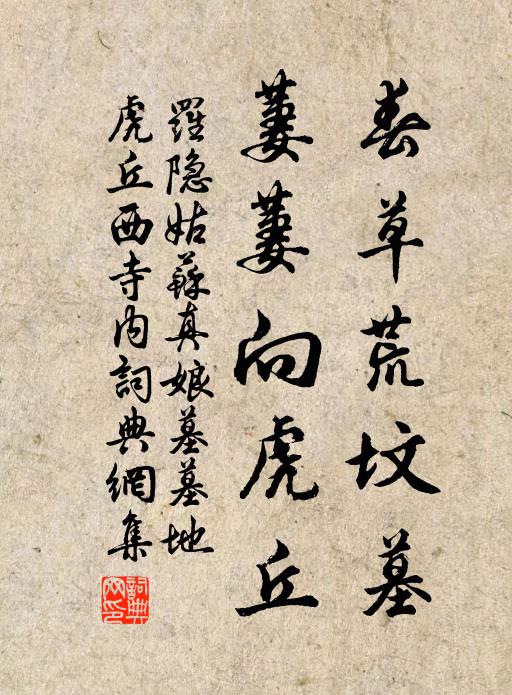 春草荒坟墓
萋萋向虎丘
羅隐姑蘇真娘墓墓地
虎丘西寺内詞典網集
詞典網印